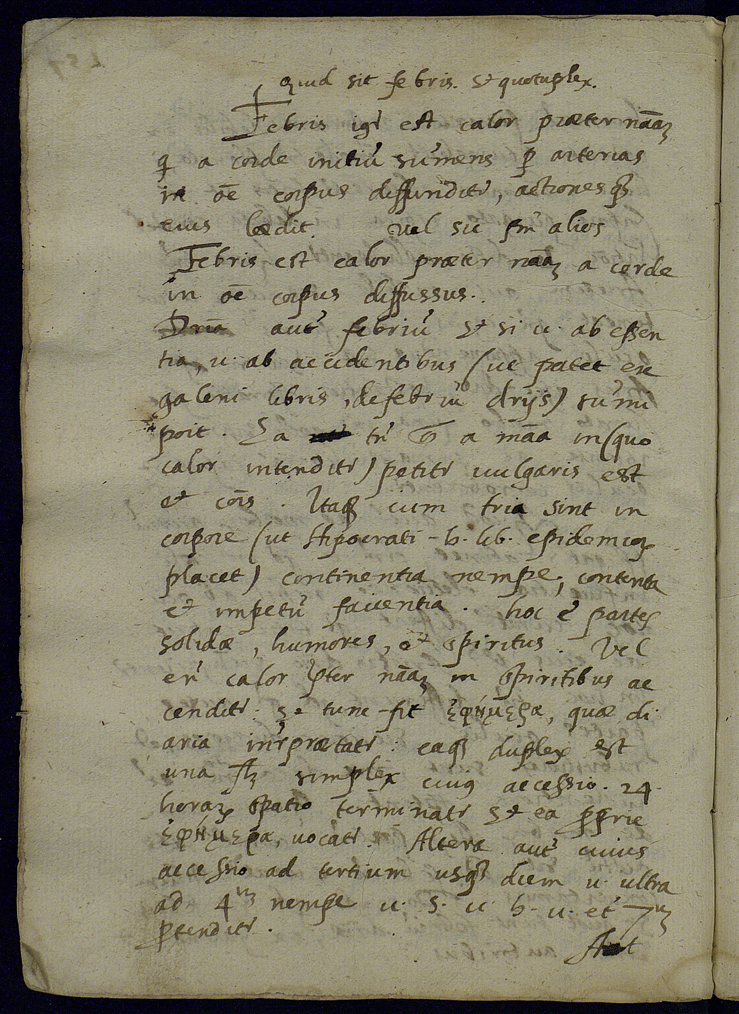 Quid sit febris. et quotuplex.
Febris igr̃ est calor præter nãã
q̃ a corde initiũ sumens p̃ arterias
in oẽ corpus diffunditr̃, actionesq̃
eius lædit. vel sic sm̃ alios
Febris est calor præter nãã a corde
in oẽ corpus diffussus.
Dria autẽ febriũ et si u. ab essen
tia, u. ab accidentibus (ut patet ex
galeni libris, de febriũ drijs) sumi
poit. Ea tñ a mãa in (quo
calor intenditr̃) petitr̃ uulgaris est
et cõis. Itaq̃ cum tria sint in
corpore (ut Hipocrati 6. lib. epidemicor̃
placet) continentia nempe, contenta
et impetũ facientia. hoc ẽ partes
solidæ, humores, et spiritus. Vel
eñ calor p̃ter nãã in spiritibus ac
cenditr̃. et tunc fit ἐφήμερα, quæ di
aria inrprætatr̃. eaq̃ duplex est
una simplex cuiq accessio. 24.
horar̃ spatio terminatr̃ et ea p̃prie
ἐφήμερα, uocatr̃. Altera autẽ cuius
accessio ad tertium usq̃ diem u. ultra
ad 4um nempe u. 5. u. 6. u. et 7um
p̃tenditr̃.
Aut